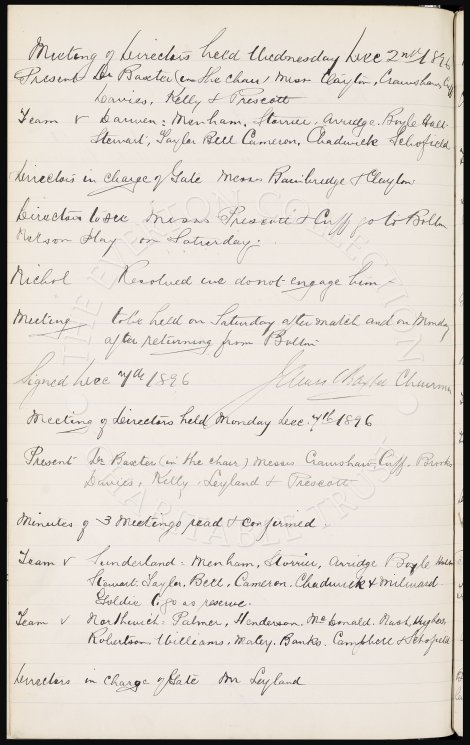 Meeting of Directors held Wednesday Dec 2nd 1896
Present Dr Baxter (in the chair) Messrs Clayton, Crawshaw, Cuff
Davies, Kelly & Prescott
Team v Darwen: Menham, Storrier, Arridge, Boyle Holt
Stewart, Taylor Bell Cameron, Chadwick Schofield
Directors in charge of Gate Messrs Bainbridge & Clayton
Directors to see Messrs Prescott & Cuff go to Bolton
Nelson play on Saturday.
Nichol Resolved we do not engage him
Meeting to be held on Saturday after match and on Monday
after returning from Bolton
Signed Dec 7th 1896 James C Baxter Chairman
Meeting of Directors held Monday Dec. 7th 1896
Present Dr Baxter (in the chair) Messrs Crawshaw, Cuff, Brooks
Davies, Kelly, Leyland & Prescott
Minutes of 3 Meetings read & confirmed.
Team v Sunderland: Menham, Storrier, Arridge Boyle Holt
Stewart, Taylor, Bell, Cameron, Chadwick & Milward
Goldie to go as reserve.
Team v Northwich: Palmer, Henderson, McDonald, Nash, Hughes,
Robertson, Williams, Maley, Banks, Campbell & Schofield
Directors in charge of Gate Mr Leyland
THE EVERTON COLLECTION
CHARITABLE TRUST